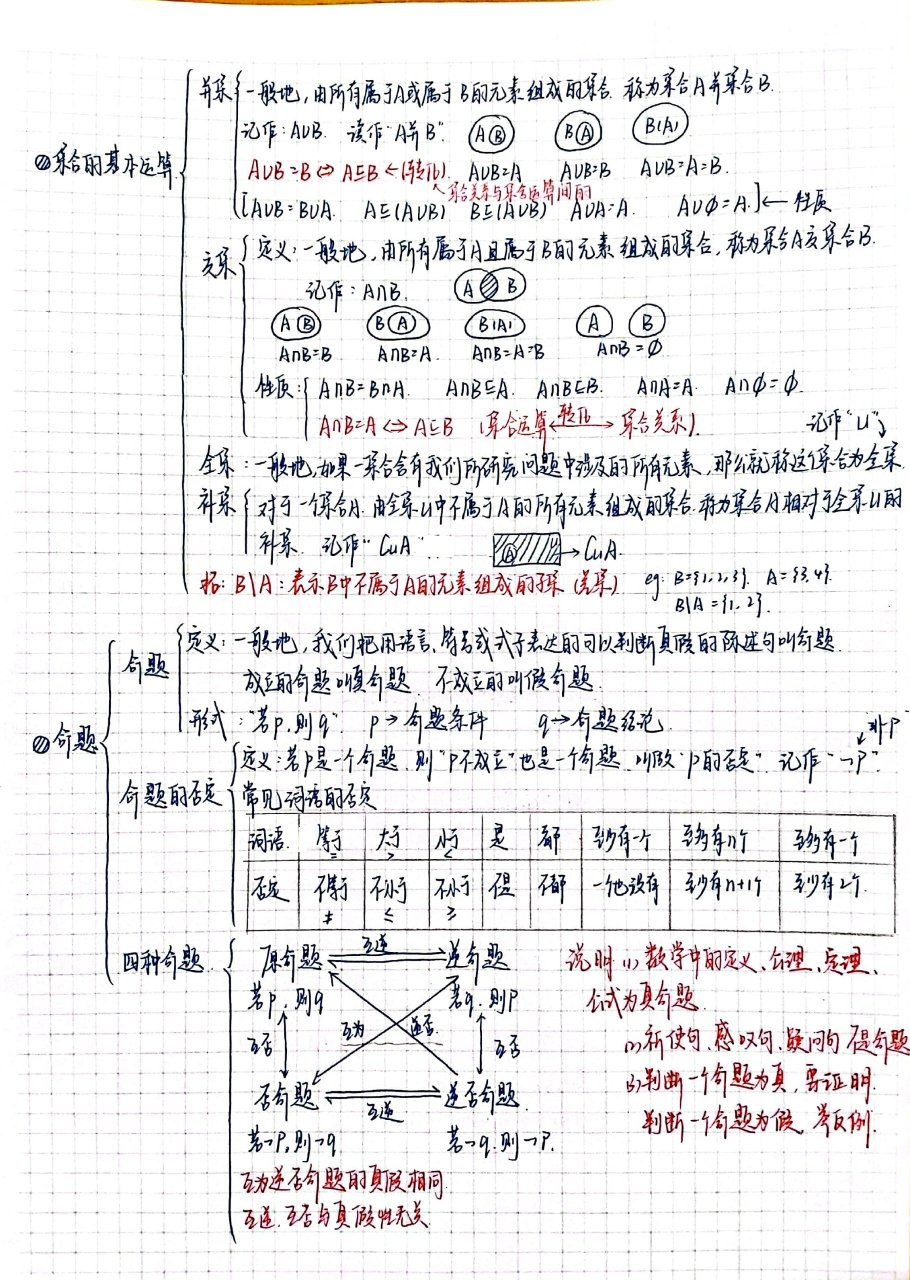 集合的基本运算
并集
一般地,由所有属于A或属于B的元素组成的集合.称为集合A并集合B.
记作:A∪B. 读作"A并B". A B B A B(A)
A∪B=B⇔A⊆B←(转化). A∪B=A A∪B=B A∪B=A=B.
集合关系与集合运算间的
[A∪B=B∪A. A⊆(A∪B) B⊆(A∪B) A∪A=A. A∪∅=A.]←性质
交集
定义:一般地,由所有属于A且属于B的元素组成的集合,称为集合A交集合B.
记作:A∩B. A B
A B B A B(A) A B
A∩B=B A∩B=A. A∩B=A=B A∩B=∅
性质: A∩B=B∩A. A∩B⊆A. A∩B⊆B. A∩A=A. A∩∅=∅.
A∩B=A⇔A⊆B (集合运算 转化 集合关系).
记作"U"
全集:一般地,如果一集合含有我们所研究问题中涉及的所有元素,那么就称这个集合为全集.
补集
对于一个集合A.由全集U中不属于A的所有元素组成的集合.称为集合A相对于全集U的
补集. 记作"CuA". A →CuA.
拓:B\A:表示B中不属于A的元素组成的子集(差集) eg: B={1,2,3}. A={3,4}.
B\A={1,2}.
命题
命题
定义:一般地,我们把用语言、符号或式子表达的可以判断真假的陈述句叫命题.
成立的命题叫真命题. 不成立的叫假命题.
形式:"若p,则q". p→命题条件 q→命题结论.
非P
命题的否定
定义:若p是一个命题.则"P不成立"也是一个命题.叫做"p的否定".记作"¬P".
常见词语的否定
词语. 等于 = 大于 > 小于 < 是 都 至少有一个 至多有n个 至多有一个
否定 不等于 ≠ 不大于 ≤ 不小于 ≥ 不是 不都 一个也没有 至少有n+1个 至少有2个.
四种命题.
原命题 互逆 逆命题
若p,则q 若q,则P
互否 互为 逆否 互否
否命题 互逆 逆否命题.
若¬P,则¬q 若¬q,则¬P.
互为逆否命题的真假相同.
互逆、互否与真假性无关
说明(1)数学中的定义、公理、定理、
公式为真命题.
(2)祈使句、感叹句、疑问句不是命题
(3)判断一个命题为真,要证明.
判断一个命题为假,举反例.